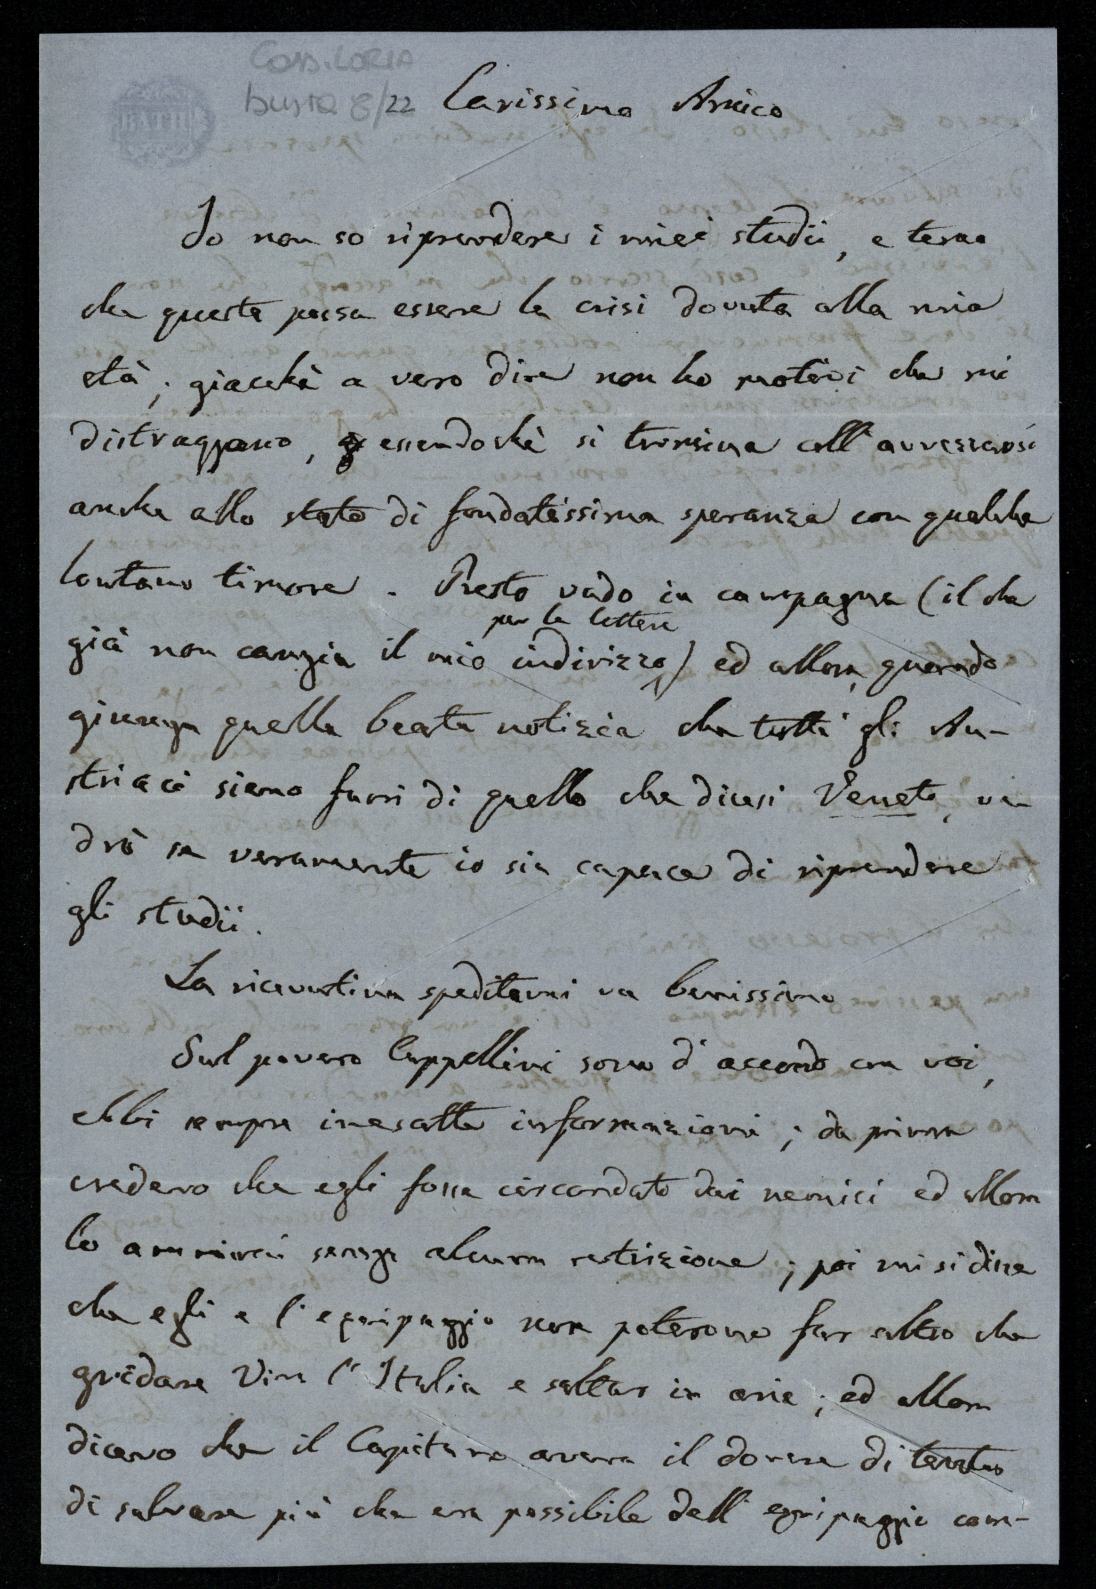 Cass. LORIA
busta 8/22
BATH
Carissimo Amico
Io non so riprendere i miei studii, e temo
che questa possa essere la crisi dovuta alla mia
età; giacchè a vero dire non ho motivi che mi
distraggano, essendochè si torna coll'avvezzarsi
anche allo stato di fondatissima speranza con qualche
lontano timore. Presto vado in campagna (il che
già non cangia il mio indirizzo per le lettere) ed allora, quando
giunga quella beata notizia che tutti gli Au-
striaci siano fuori di quello che dicesi Veneto, ve-
drò se veramente io sia capace di riprendere
gli studii.
La ricevutina speditami va benissimo
Sul povero Cappellini sono d'accordo con voi,
ebbi sempre inesatte informazioni; da prima
credevo che egli fosse circondato dai nemici ed allora
lo ammirai senza alcuna restrizione; poi mi si disse
che egli e l'equipaggio non poterono far altro che
gridare Viva l'Italia e saltar in aria; ed allora
dicevo che il Capitano aveva il dovere di tentar
di salvare più che era possibile dell'equipaggio com-